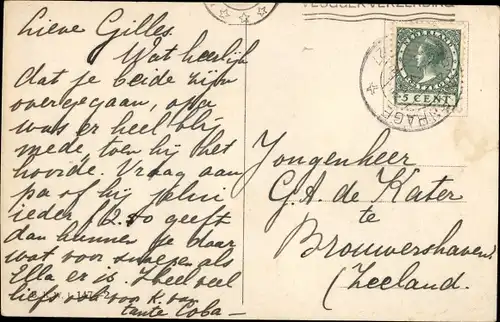 Lieve Gilles.
Wat heerlijk
dat je beide zijn
overgegaan, opa
was er heel blij
mede, toen hij het
hoorde. Vraag aan
pa of hij jelui
ieder f 2.50 geeft
dan kunnen je daar
wat voor snoepen als
Ella er is. Heel veel
liefs ook voor K. van
tante Coba
5 CENT
Jongenheer
G.A. de Kater
te
Brouwershaven
(Zeeland.